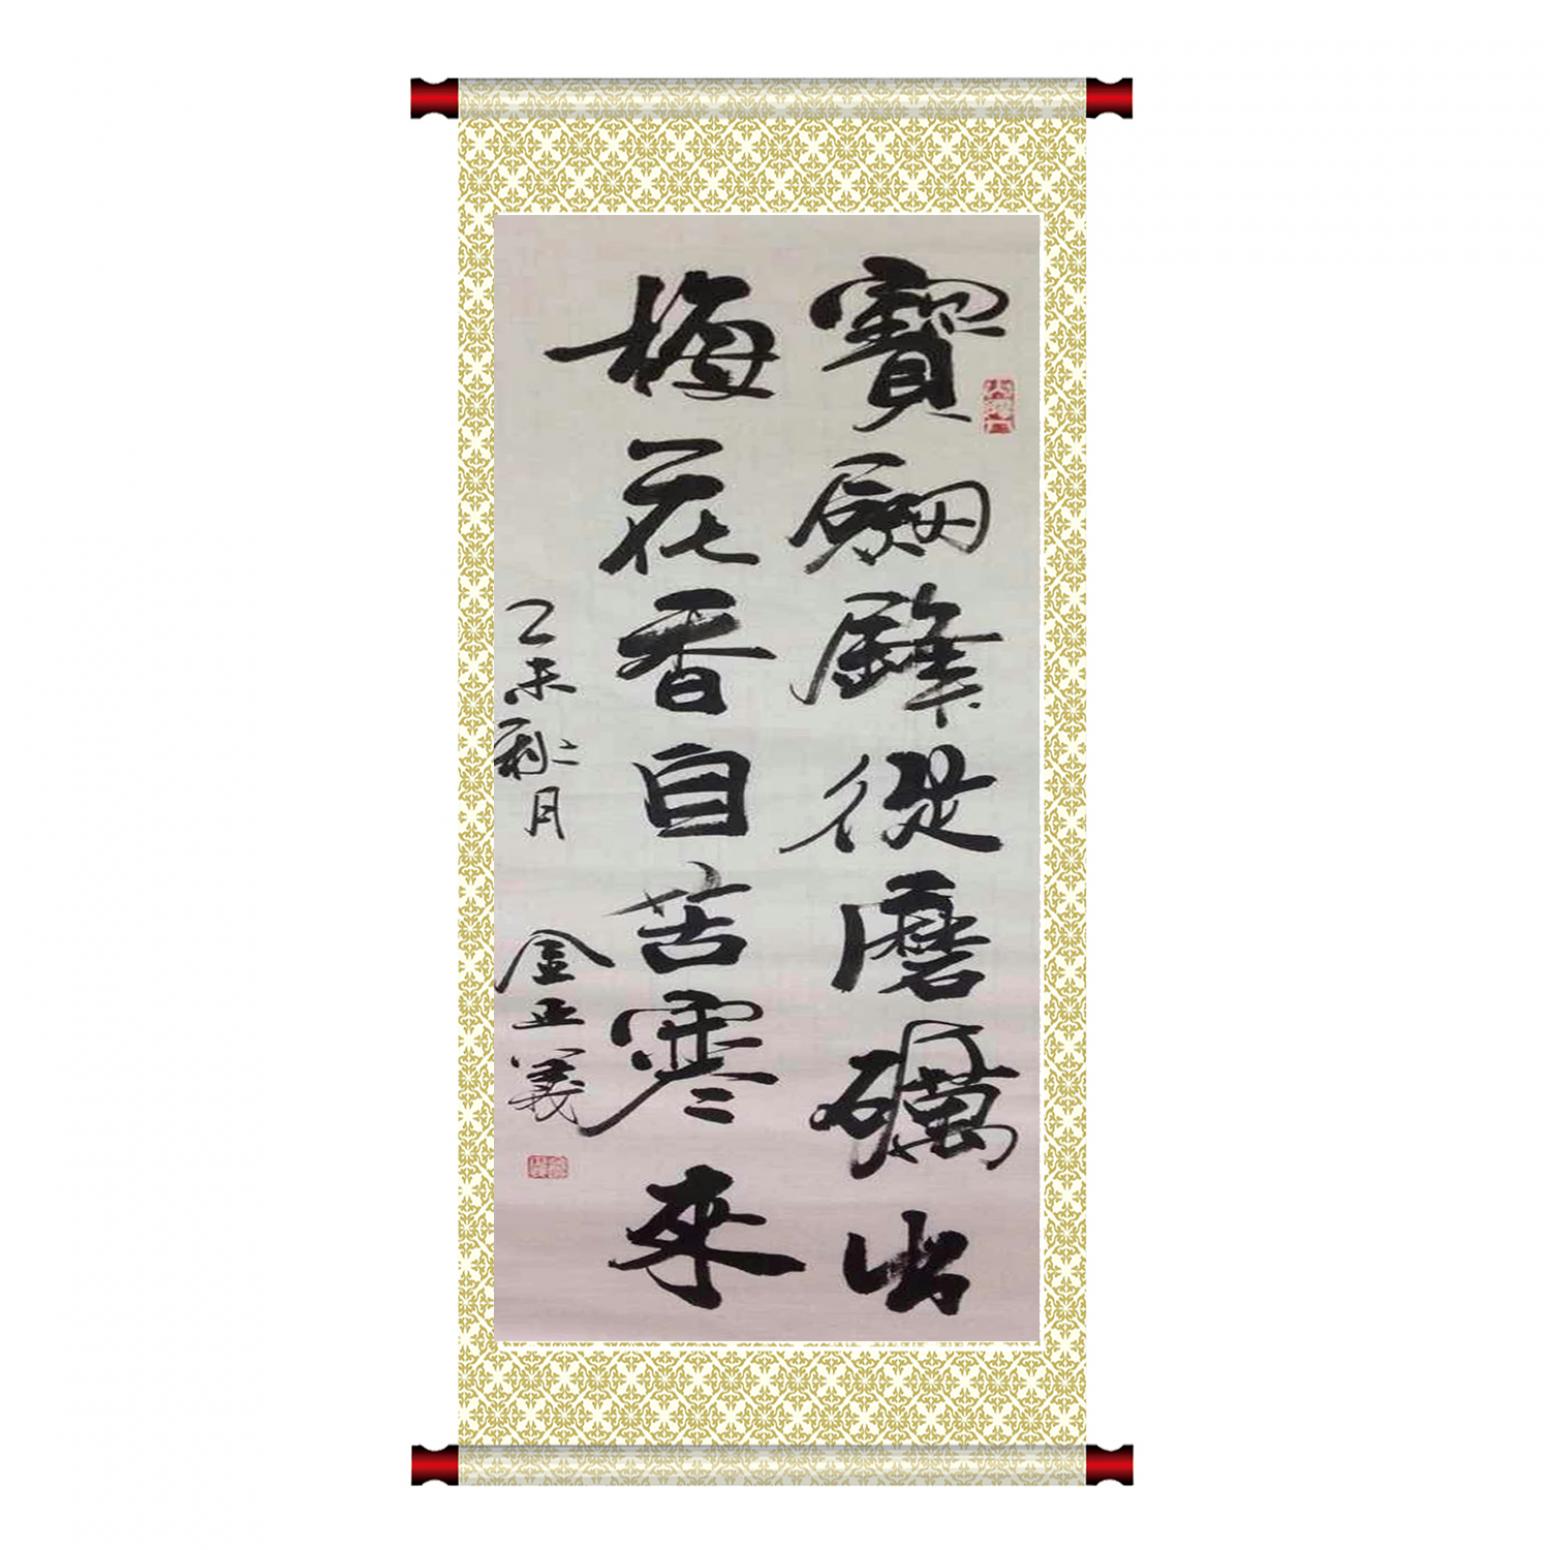 寶劒鋒從磨礪出
梅花香自苦寒來
乙未秋月
金正義